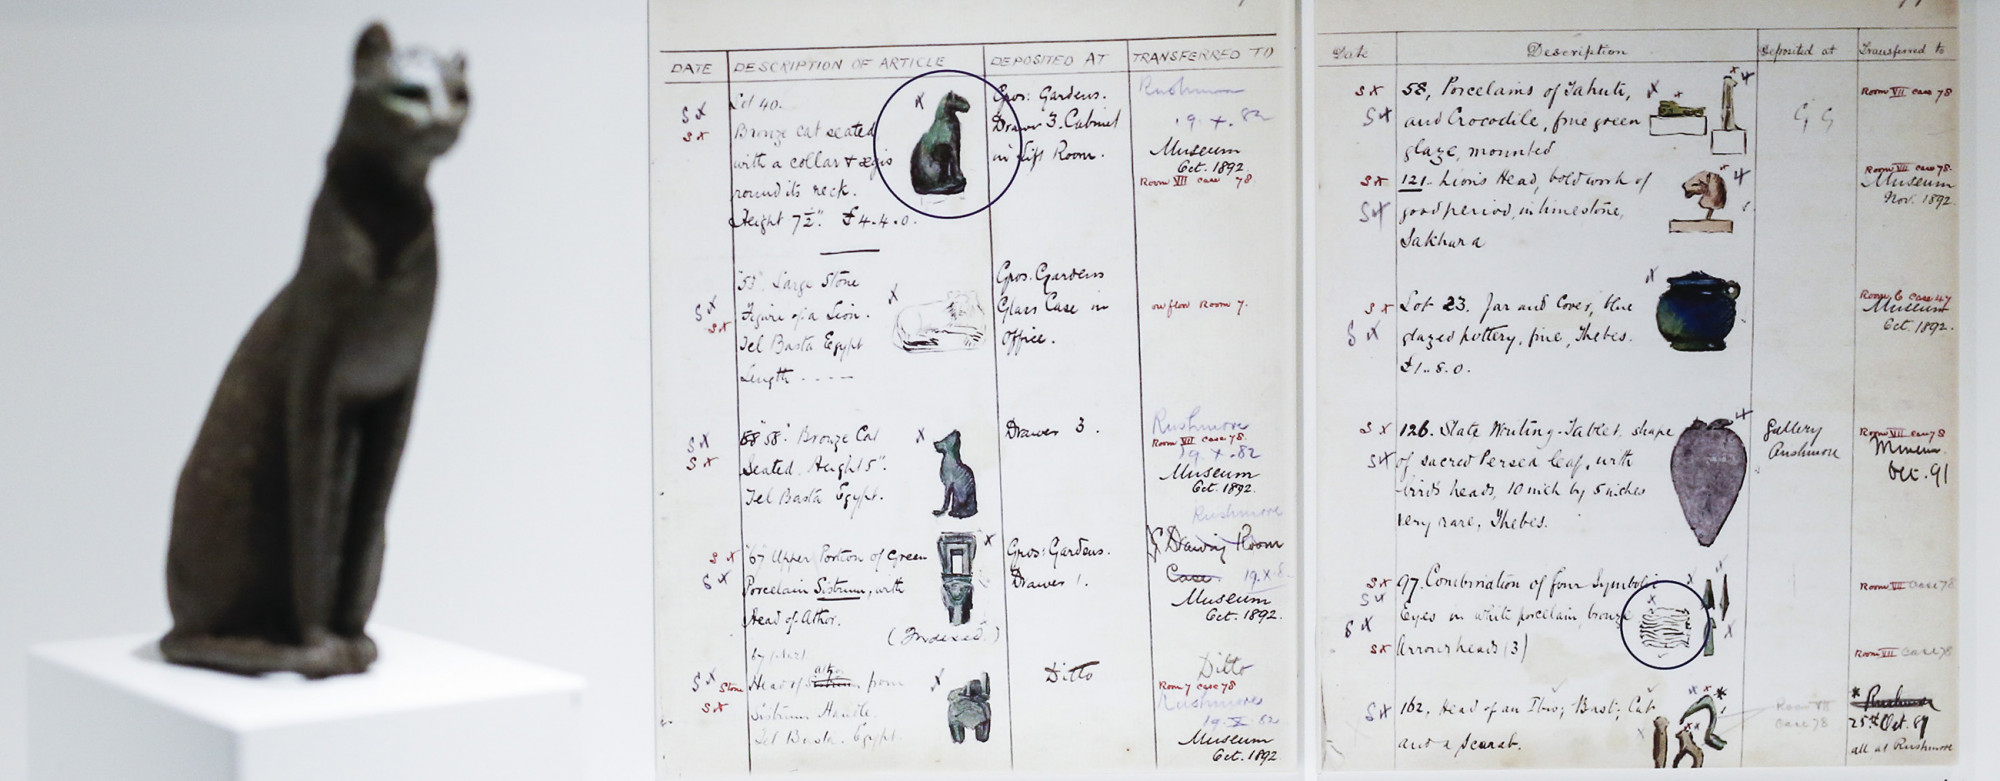 DATE
DESCRIPTION OF ARTICLE
DEPOSITED AT
TRANSFERRED TO
S X
S X
Lot 40.
Bronze Cat seated
with a collar + ægis
round its neck.
Height 7½". £4.4.0.
Gros: Gardens.
Drawer 3. Cabinet
in Lift Room.
Rushmore
19. X. 82
Museum
Oct. 1892
Room VII case 78.
S X
S X
"53" Large Stone
Figure of a Lion.
Tel Basta Egypt
Length ----
Gros. Gardens
Glass Case in
Office.
Room 7.
S X
S X
58". Bronze Cat
Seated. Height 5".
Tel Basta Egypt.
Drawer 3.
Rushmore
Room VII case 78.
19. X. 82
Museum
Oct. 1892.
S X
S X
"67" Upper Portion of Green
Porcelain Sistrum, with
Head of Athor.
(Indexed.)
Gros: Gardens.
Drawer 1.
Rushmore
Drawing Room
Case
19. X. 8
Museum
Oct. 1892.
S X
S X
Stone
Head of from
Sistrum Handle.
Tel Basta. Egypt.
Ditto
Ditto
Room 7 case 78
Rushmore
19. X. 82
Museum
Oct. 1892
Date
Description
Deposited at
Transferred to
S X
S X
58, Porcelains of Tahuti,
and Crocodile, fine green
glaze, mounted
4
G G
Room VII case 78
S X
S X
121. Lion's Head, bold work of
good period, in limestone,
Sakhara
4
Room VII case 78.
Museum
Nov. 1892
S X
S X
Lot 23. Jar and Cover, blue
glazed pottery, fine, Thebes.
£1.8.0.
Room 6 case 47
Museum
Oct. 1892.
S X
S X
126. Slate Writing-Tablet, shape
of sacred Persea leaf, with
birds heads, 10 inch by 5 inches
very rare, Thebes.
4
Gallery
Rushmore
Room VII case 78
Museum
Oct. 91
S X
S X
S X
S X
97. Combination of four Symbolic
Eyes in white porcelain, bronze
Arrowheads (3)
Room VII case 78
Room VII case 78
S X
162, Head of an Ibis; Bast; Cat
and a Scarab.
Room VII
case 78
Rushmore
25th Oct. 89
all at Rushmore